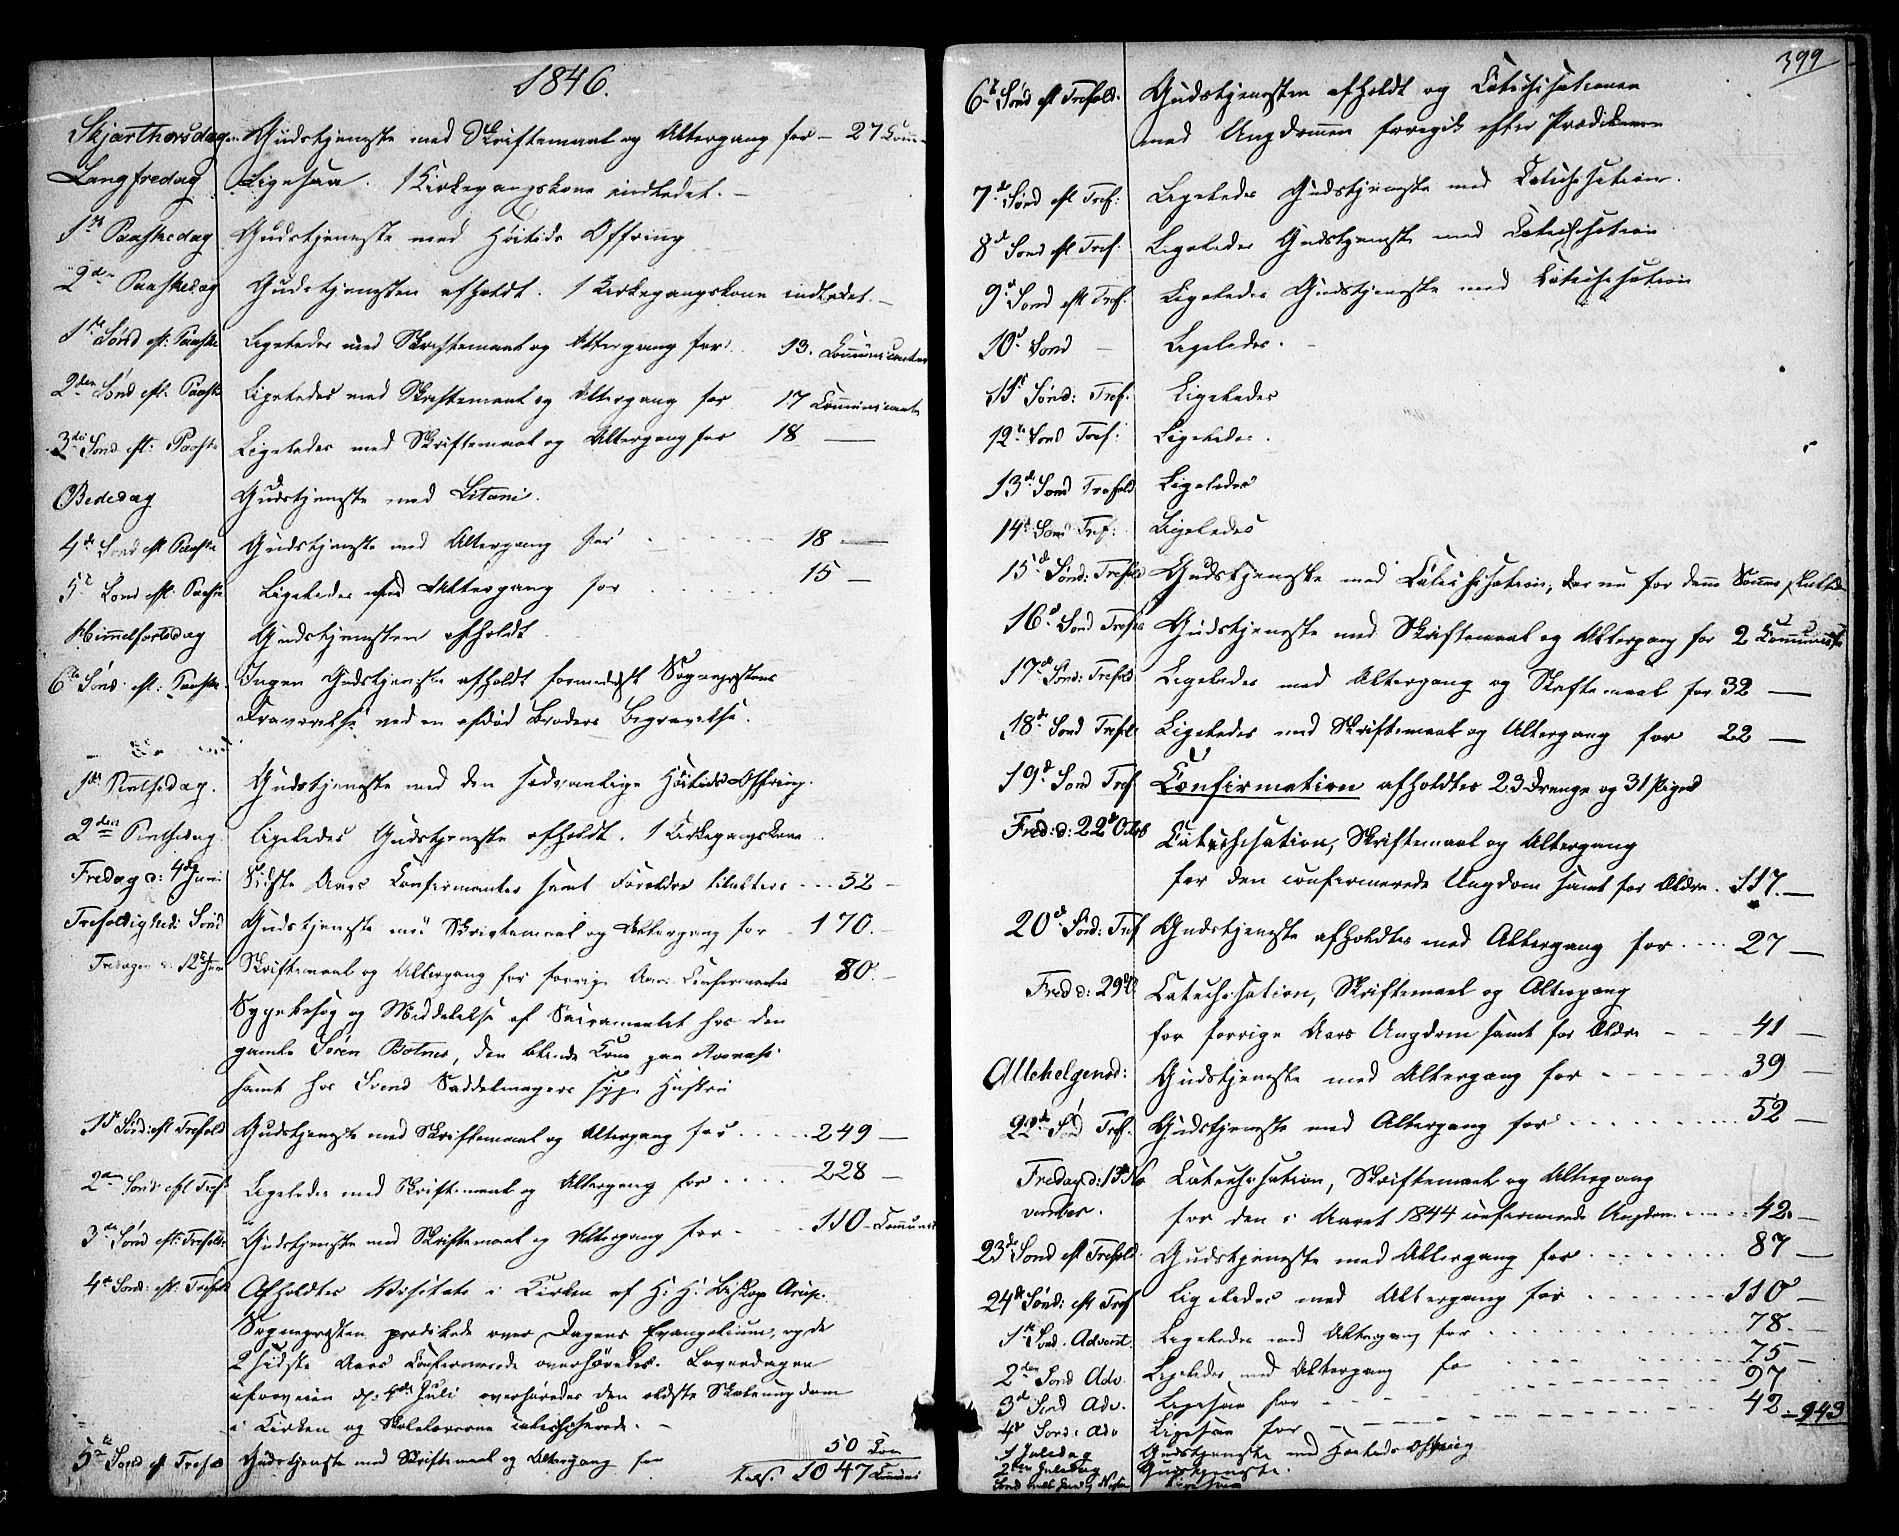 1846.
Skjærthorsdag Gudstjeneste med Skriftemaal og Altergang for – 27 Comm
Langfredag Ligesaa. 1 Kirkegangskone indledet. –
1ste Paaskedag Gudstjeneste med Höitids Offring
2den Paaskedag Gudstjenesten afholdt. 1 Kirkegangskone indledet. –
1ste Sønd eft: Paaske Ligeledes med Skriftemaal og Altergang for 13. Communicanter
2den Sønd eft: Paaske Ligeledes med Skriftemaal og Altergang for 17 Communicanter
3die Sønd eft: Paaske Ligeledes med Skriftemaal og Altergang for 18 —
Bededag Gudstjeneste med Litani.
4de Sønd eft Paaske Gudstjeneste med Altergang for 18 —
5te Sønd eft. Paaske Ligeledes med Altergang for 15 —
Himmelfartsdag Gudstjenesten afholdt.
6te Sønd: eft: Paaske. Ingen Gudstjeneste afholdt formedelst Sognepræstens
Fraværelse ved en afdød Broders Begravelse.
1ste Pintsedag. Gudstjeneste med den sedvanlige Höitids Offring.
2den Pintsedag. Ligeledes Gudstjeneste afholdt. 1 Kirkegangskone
Fredag d: 4de Juni Sidste Aars Confirmanter samt Forældre tilalters - - - 32 –
Trefoldigheds Sönd Gudstjeneste med Skriftemaal og Altergang for - 170. –
Fredagen d. 12te Juni Skriftemaal og Altergang for forrige Aars Confirmanter 80. –
Sygebesög og Meddelelse af Sacramentet hos den
gamle Sören Botner, den blinde Kone paa
samt hos Svend Saddelmagers syge Hustru
1ste Sønd: eft Trefold Gudstjeneste med Skriftemaal og Altergang for - - - - 249 —
2den Sønd: eft Tref. Ligeledes med Skriftemaal og Altergang for - - - - 228 –
3die Sønd eft: Trefold: Gudstjeneste med Skriftemaal og Altergang for - - 110 – Communi
4de Sønd: eft: Trefold Afholdtes Visitats i Kirken af H: H: Biskop Arup.
Sognepræsten prædikede over Dagens Evangelium, og de
2 sidste Aars Confirmerede overhøredes. Løverdagen
iforveien d: 4de Juli overhøredes den ældste Skoleungdom
i Kirken og Skolelærerne catechiserede. –
5te Sønd eft Trefold Gudstjeneste med Skriftemaal og Altergang for 50 Com
1047 Communi
399
6te Sønd eft Trefold. Gudstjenesten afholdt og Catechisationen
med Ungdommen foregik efter Prædikenen
7de Sønd eft Tref: Ligeledes Gudstjeneste med Catechisation.
8de Sønd eft Tref. Ligeledes Gudstjeneste med Catechisation
9de Sønd eft Tref: Ligeledes Gudstjeneste med Catechisation
10de Sønd – Ligeledes. –
11te Sønd: Tref. Ligeledes
12te Sønd Tref: Ligeledes.
13de Sønd Trefold Ligeledes
14de Sønd Tref: Ligeledes
15de Sønd: Trefold Gudstjeneste med Catechisation, der nu for denne Sommer sluttede
16de Sønd Trefold Gudstjeneste med Skriftemaal og Altergang for 2 Communicanter
17de Sønd: Trefold Ligeledes med Altergang og Skriftemaal for 32 —
18de Sønd Trefold Ligeledes med Skriftemaal og Altergang for 22 —
19de Sønd Tref Confirmation afholdtes 23 Drenge og 31 Piger
Fred: d: 22de Octob Catechisation, Skriftemaal og Altergang
for den confirmerede Ungdom samt for Ældre . 117. —
20de Sønd: Tref Gudstjeneste afholdtes med Altergang for - - - - 27 —
Fred d: 29de Catechisation, Skriftemaal og Altergang
for forrige Aars Ungdom samt for Ældre - - - - 41 –
Allehelgensd: Gudstjeneste med Altergang for - - - - - - 39 –
22de Sd Tref. Gudstjeneste med Altergang for - - - - - - - 52 —
Fredag d: 13 No Catechisation, Skriftemaal og Altergang
vember. for den i Aaret 1844 confirmerede Ungdom - - - - - 42. –
23de Sønd eft Trefold. Gudstjeneste med Altergang for - - - - - - - 87 —
24de Sønd: eft Tref Ligeledes med Altergang for - - - - - - - 110 —
1ste Sønd. Advent. Ligeledes med Altergang for - - - - - - - 78. –
2den Sønd Adv. Ligeledes med Altergang for - - - - - - - 75 –
3die Sønd Adv. Ligesaa for - - - - - - - 97
4de Sønd: Adv Ligesaa for - - - - - - - 42 – 943
1 Juledag Gudstjeneste med Høitids Offring
2den Juledag Gudstjeneste.
Ligesaa